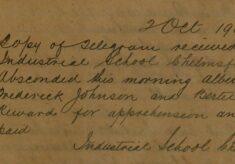 2 Oct 19
Copy of Telegram received
Industrial School Chelmsf
Absconded this morning Albe
Frederick Johnson and Berte
Reward for apprehension an
paid
Industrial School Che